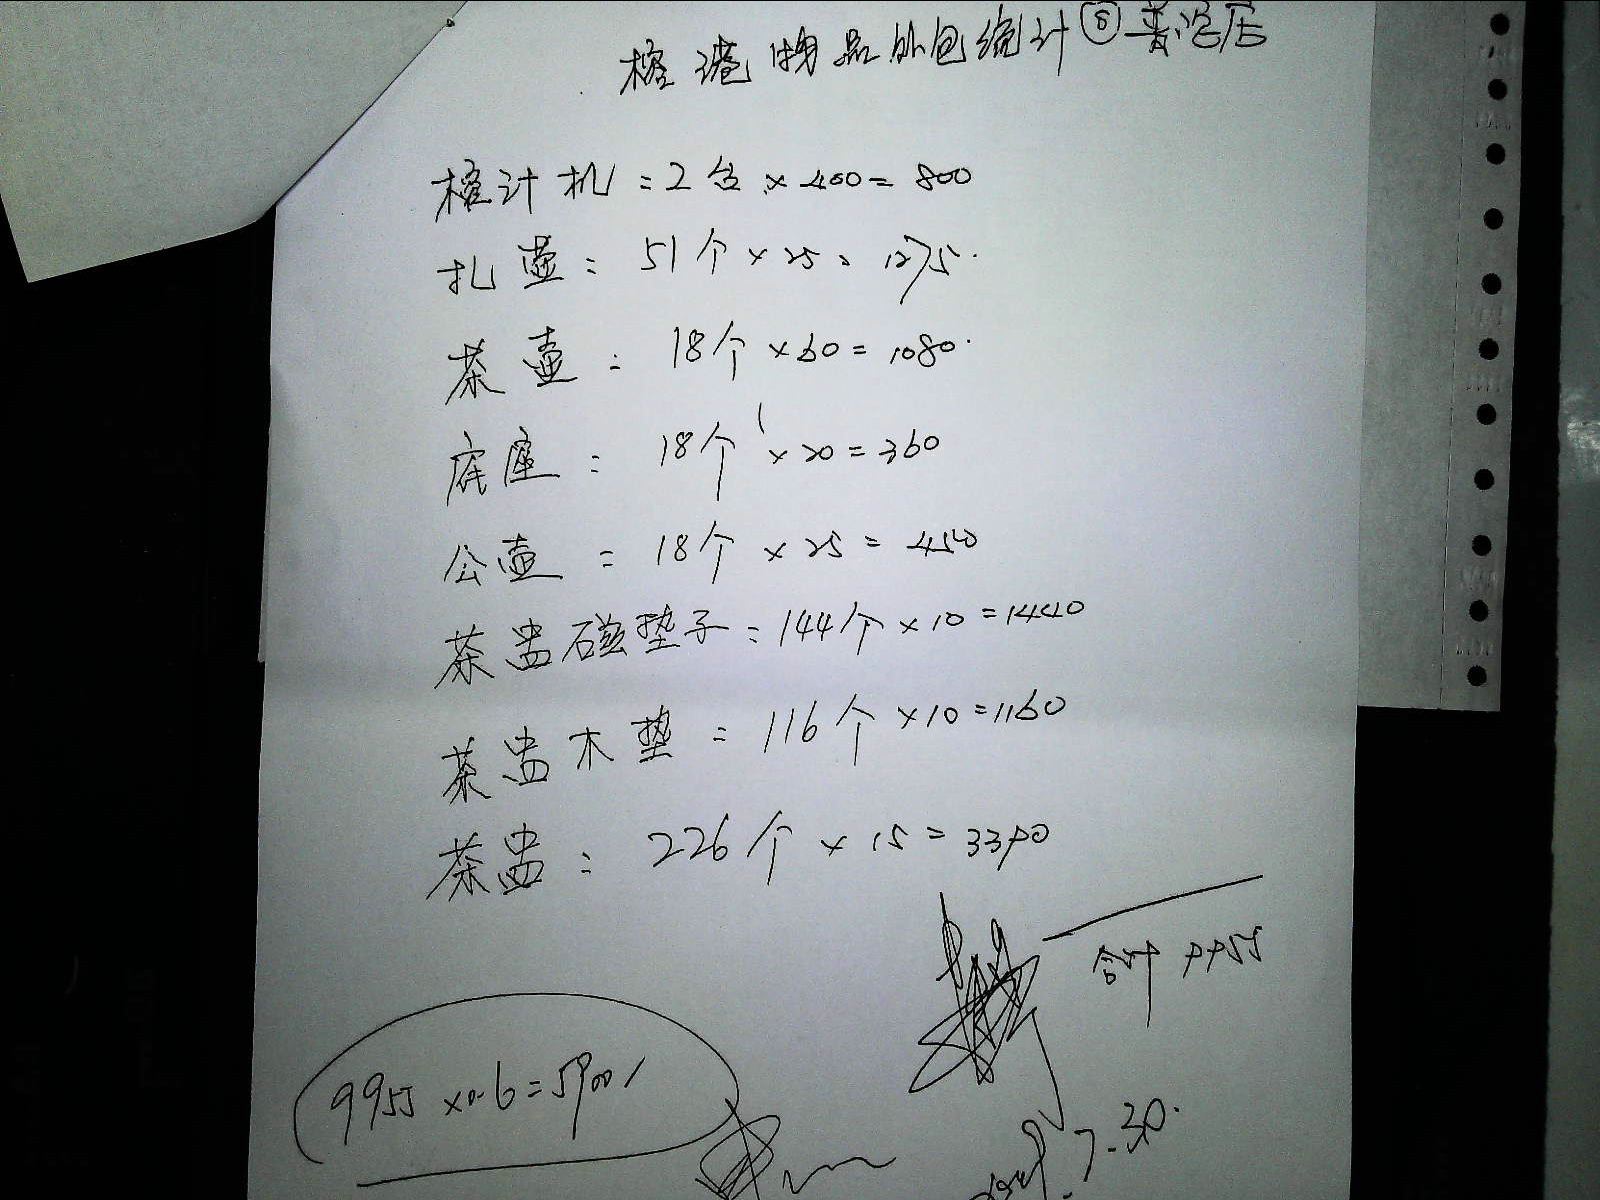 榕港物品外包统计⑧普洱店
榕计机:2台×400=800
扎壶:51个×25=1275.
茶壶:18个×60=1080.
底座:18个×20=360
公壶=18个×25=450
茶盅磁垫子:144个×10=1440
茶盅木垫=116个×10=1160
茶盅:226个×15=3390
合计 9955
9955×0.6=5900
7.30.